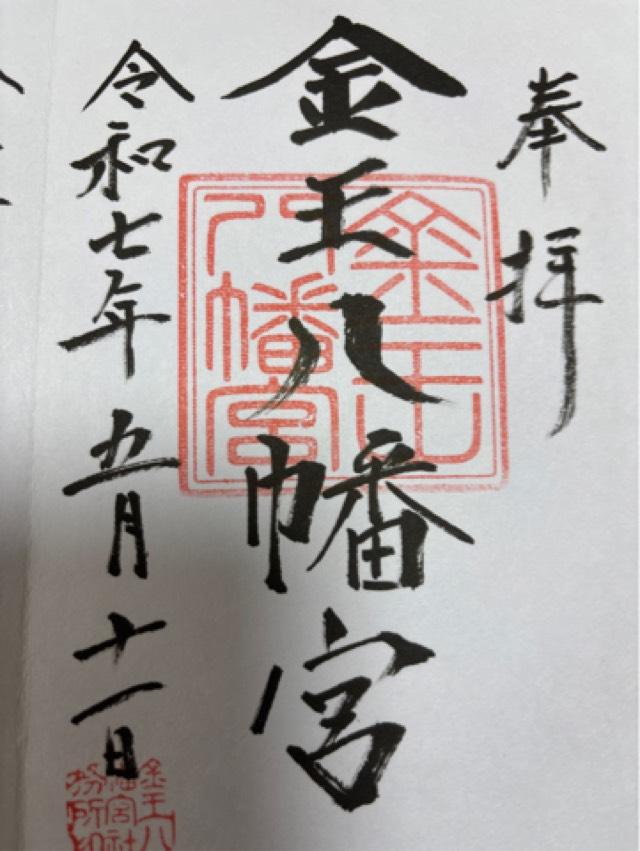 奉拝
金王八幡宮
令和七年五月十一日
金王八幡宮
金王八
幡宮社
務所印